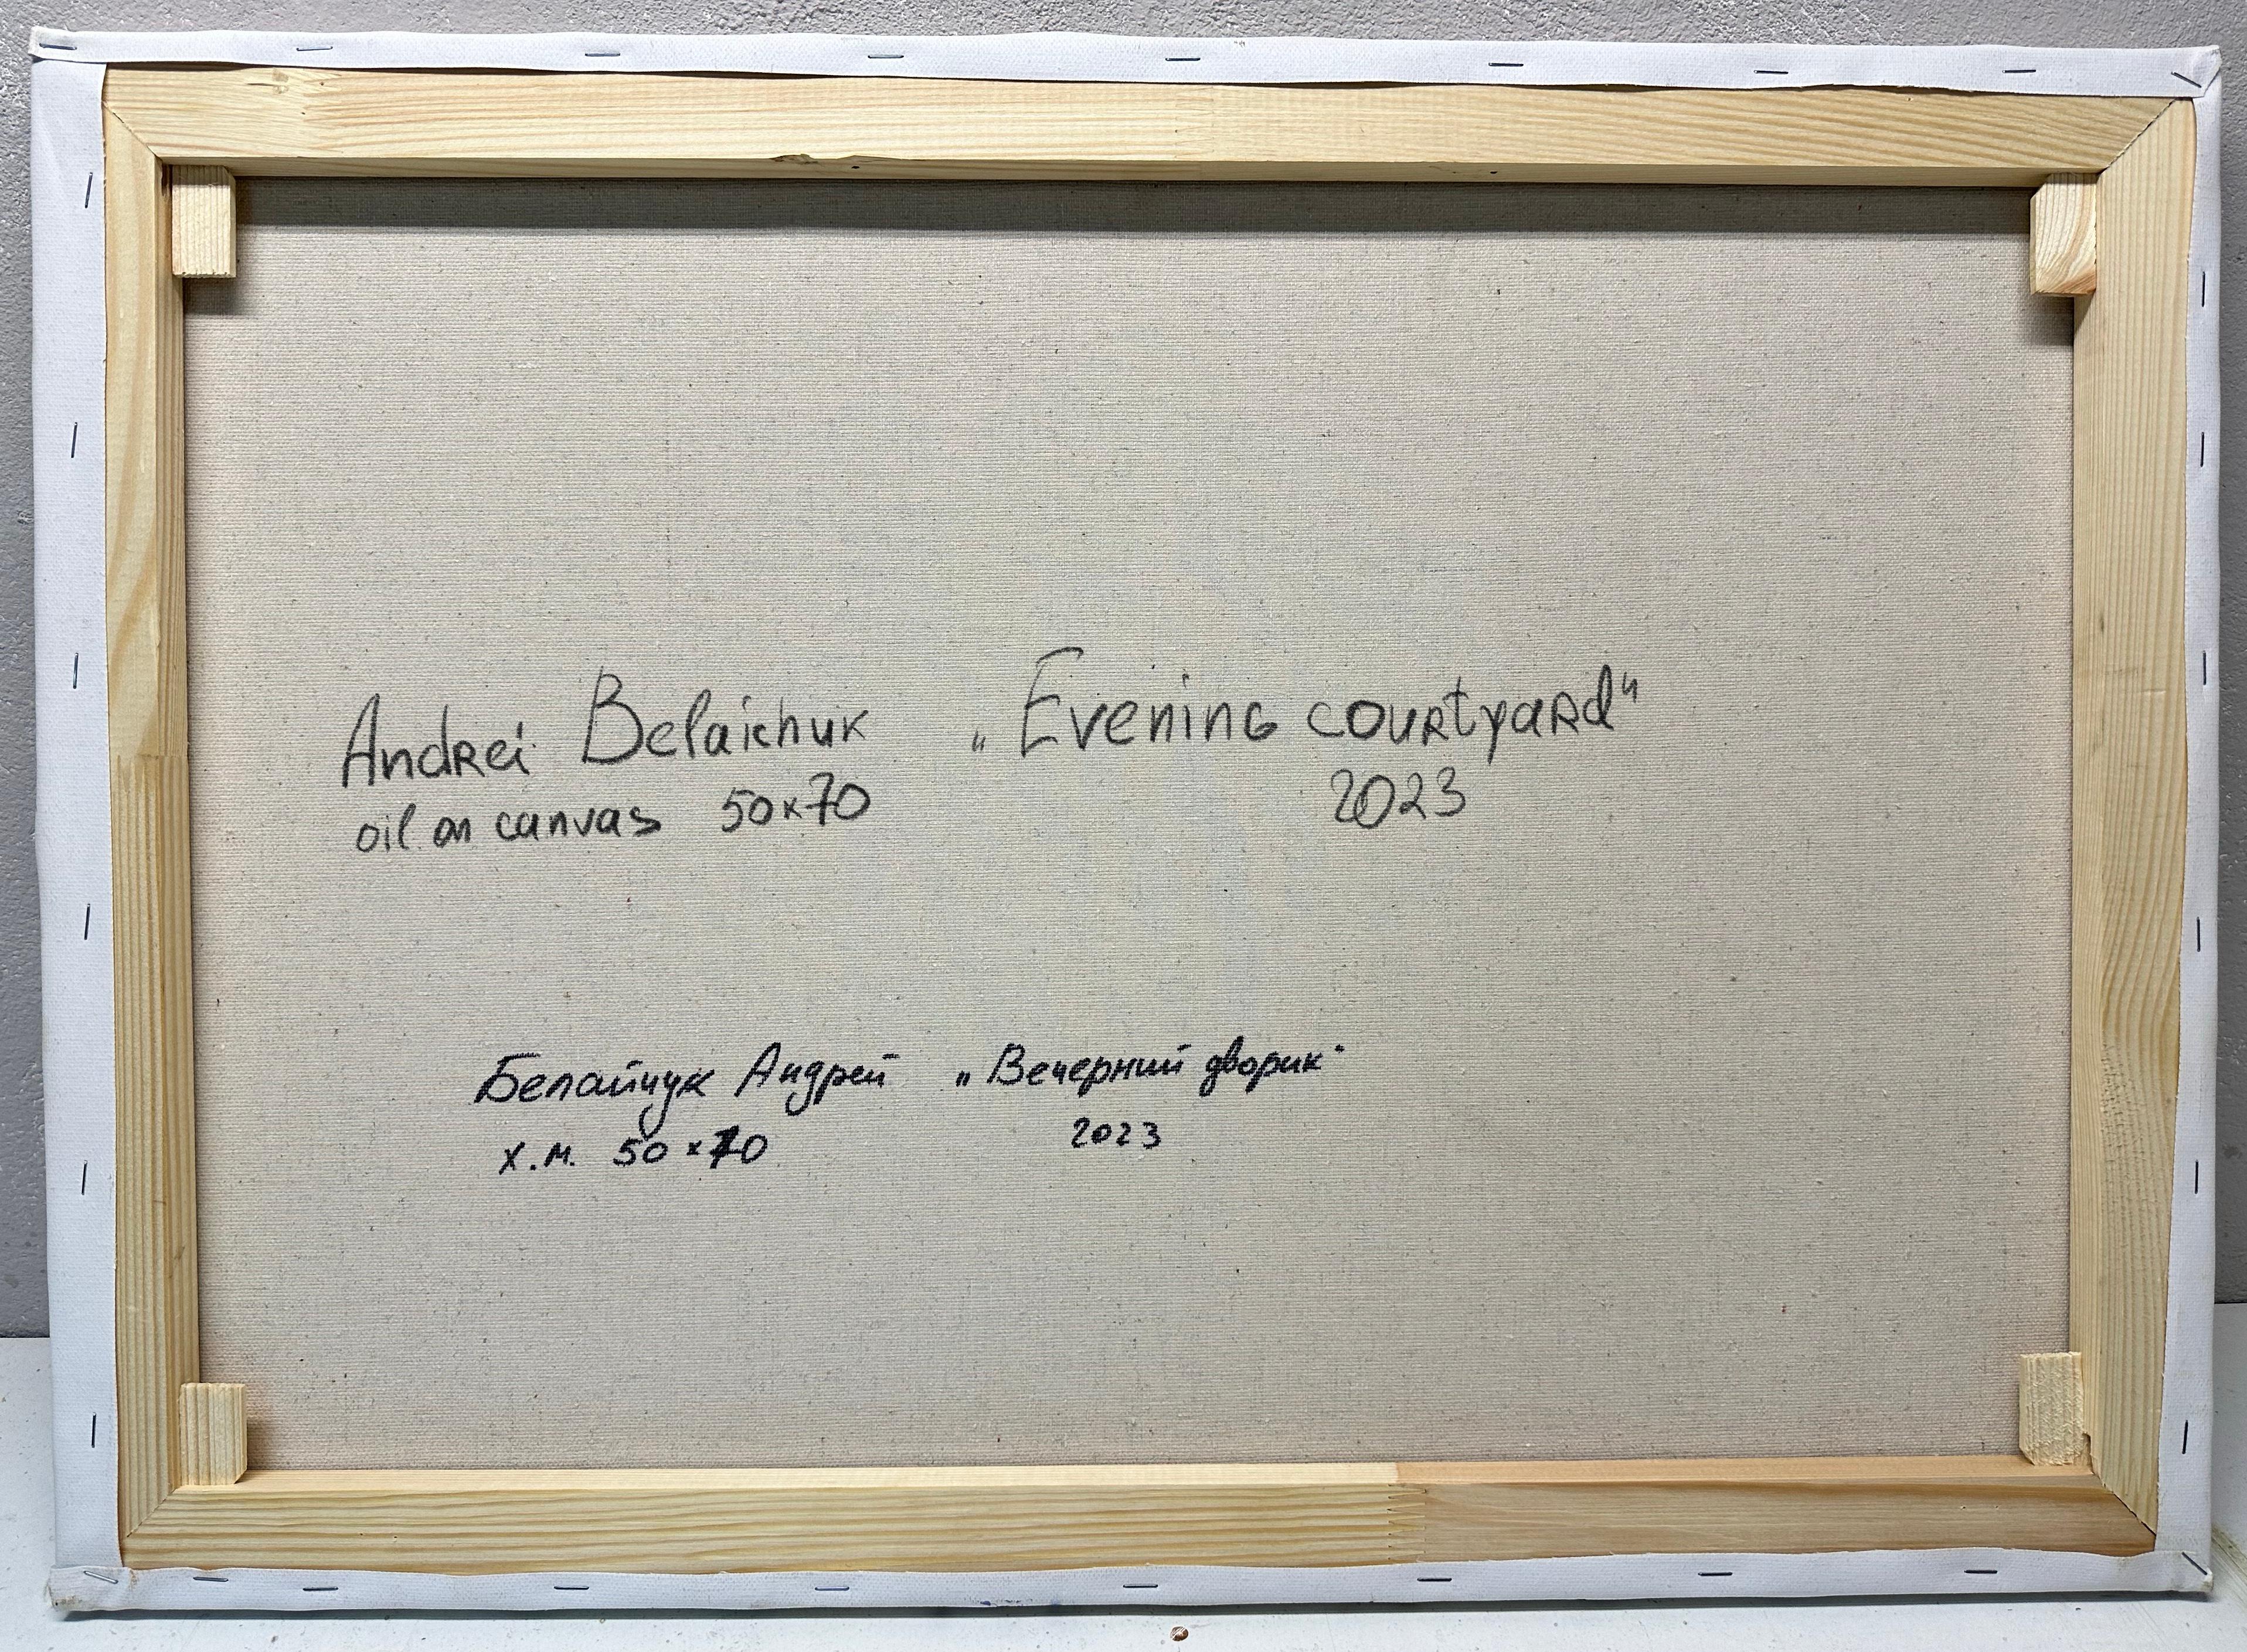 Andrei Belaichuk „Evening courtyard"
oil on canvas 50x70 2023
Белайчук Андрей „Вечерний дворик"
х.м. 50x70 2023